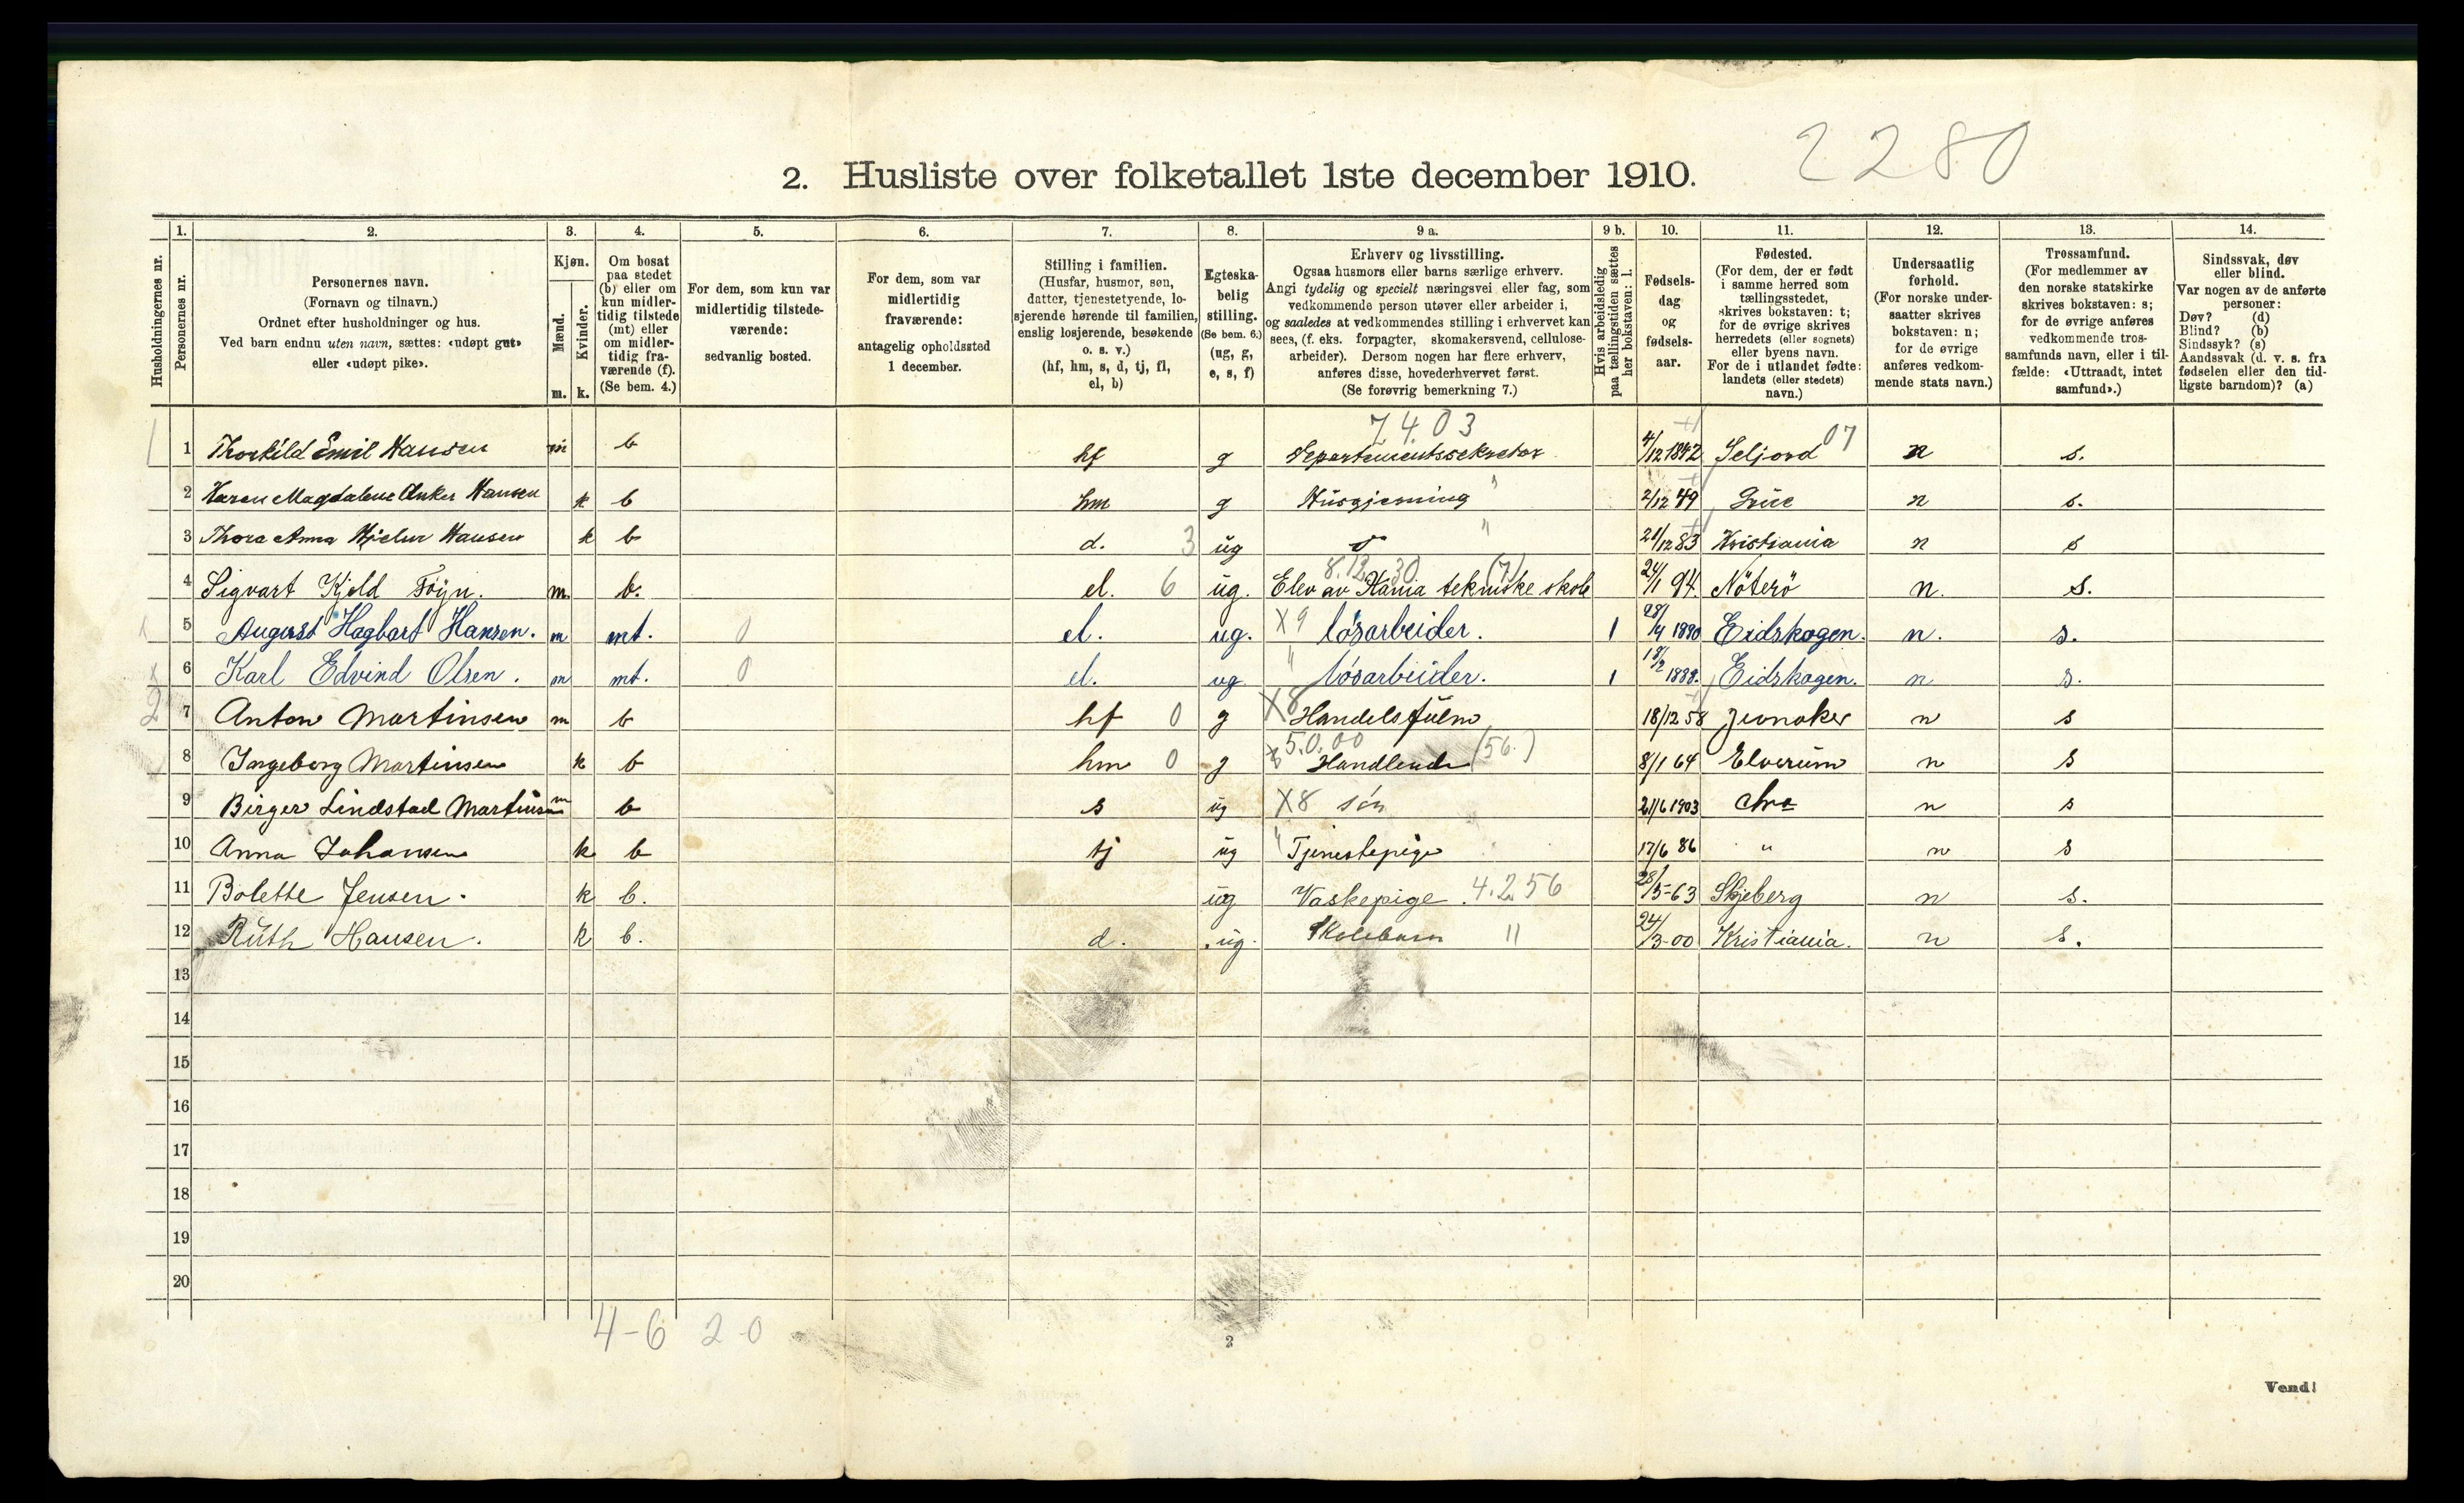 2280
2. Husliste over folketallet 1ste december 1910.
Husholdningernes nr.
1. Personernes nr.
2. Personernes navn. (Fornavn og tilnavn.) Ordnet efter husholdninger og hus. Ved barn endnu uten navn, sættes: «udøpt gut» eller «udøpt pike».
3. Kjøn. Mænd. m. Kvinder. k.
4. Om bosat paa stedet (b) eller om kun midlertidig tilstede (mt) eller om midlertidig fraværende (f). (Se bem. 4.)
5. For dem, som kun var midlertidig tilstedeværende: sedvanlig bosted.
6. For dem, som var midlertidig fraværende: antagelig opholdssted 1 december.
7. Stilling i familien. (Husfar, husmor, søn, datter, tjenestetyende, losjerende hørende til familien, enslig losjerende, besøkende o. s. v.) (hf, hm, s, d, tj, fl, el, b)
8. Egteskabelig stilling. (Se bem. 6.) (ug, g, e, s, f)
9 a. Erhverv og livsstilling. Ogsaa husmors eller barns særlige erhverv. Angi tydelig og specielt næringsvei eller fag, som vedkommende person utøver eller arbeider i, og saaledes at vedkommendes stilling i erhvervet kan sees, (f. eks. forpagter, skomakersvend, cellulosearbeider). Dersom nogen har flere erhverv, anføres disse, hovederhvervet først. (Se forøvrig bemerkning 7.)
9 b. Hvis arbeidsledig paa tællingstiden sættes her bokstaven: l.
10. Fødselsdag og fødselsaar.
11. Fødested. (For dem, der er født i samme herred som tællingsstedet, skrives bokstaven: t; for de øvrige skrives herredets (eller sognets) eller byens navn. For de i utlandet fødte: landets (eller stedets) navn.)
12. Undersaatlig forhold. (For norske undersaatter skrives bokstaven: n; for de øvrige anføres vedkommende stats navn.)
13. Trossamfund. (For medlemmer av den norske statskirke skrives bokstaven: s; for de øvrige anføres vedkommende trossamfunds navn, eller i tilfælde: «Uttraadt, intet samfund».)
14. Sindssvak, døv eller blind. Var nogen av de anførte personer: Døv? (d) Blind? (b) Sindssyk? (s) Aandssvak (d. v. s. fra fødselen eller den tidligste barndom)? (a)
7403
1 1 Thorkild Emil Hansen m b hf g Departementssekretær 4/12 1842 Seljord 07 n s.
2 Karen Magdalene Anker Hansen k b hm g Husgjerning " 2/12 49 Grue n s.
3 Thora Anna Hjelm Hansen k b d. 3 ug " 21/12 83 Kristiania n s
8.12.30 (7)
4 Sigvart Kjeld Föyn. m. b. el. 6 ug. Elev av Kania tekniske skole 24/1 94. Nöterö n. s.
5 August Hagbart Hansen. m mt. 0 el. ug. X9 løsarbeider. l 28/4 1890 Eidskogen. n. s.
x 6 Karl Edvind Olsen. m mt. 0 el. ug " løsarbeider. l 18/2 1888. Eidskogen. n s.
2 7 Anton Martinsen m b hf 0 g X8 Handelsfulm 18/12 58 Jevnaker n s
5.0.00 (56.)
8 Ingeborg Martinsen k b hm 0 g Handlende 8/1 64 Elverum n s
9 Birger Lindstad Martinsen m b s ug X8 søn 21/6 1903 Chra n s
10 Anna Johansen k b tj ug " Tjenestepige 17/6 86 " n s
11 Bolette Jensen. k b. ug Vaskepige. 4.2.56 28/5-63 Skjeberg n s.
12 Ruth Hansen. k b. d. ug. Skolebarn 11 24/3-00 Kristiania. n s.
13
14
15
16
17
18
19
20
4-6 2-0
2
Vend!